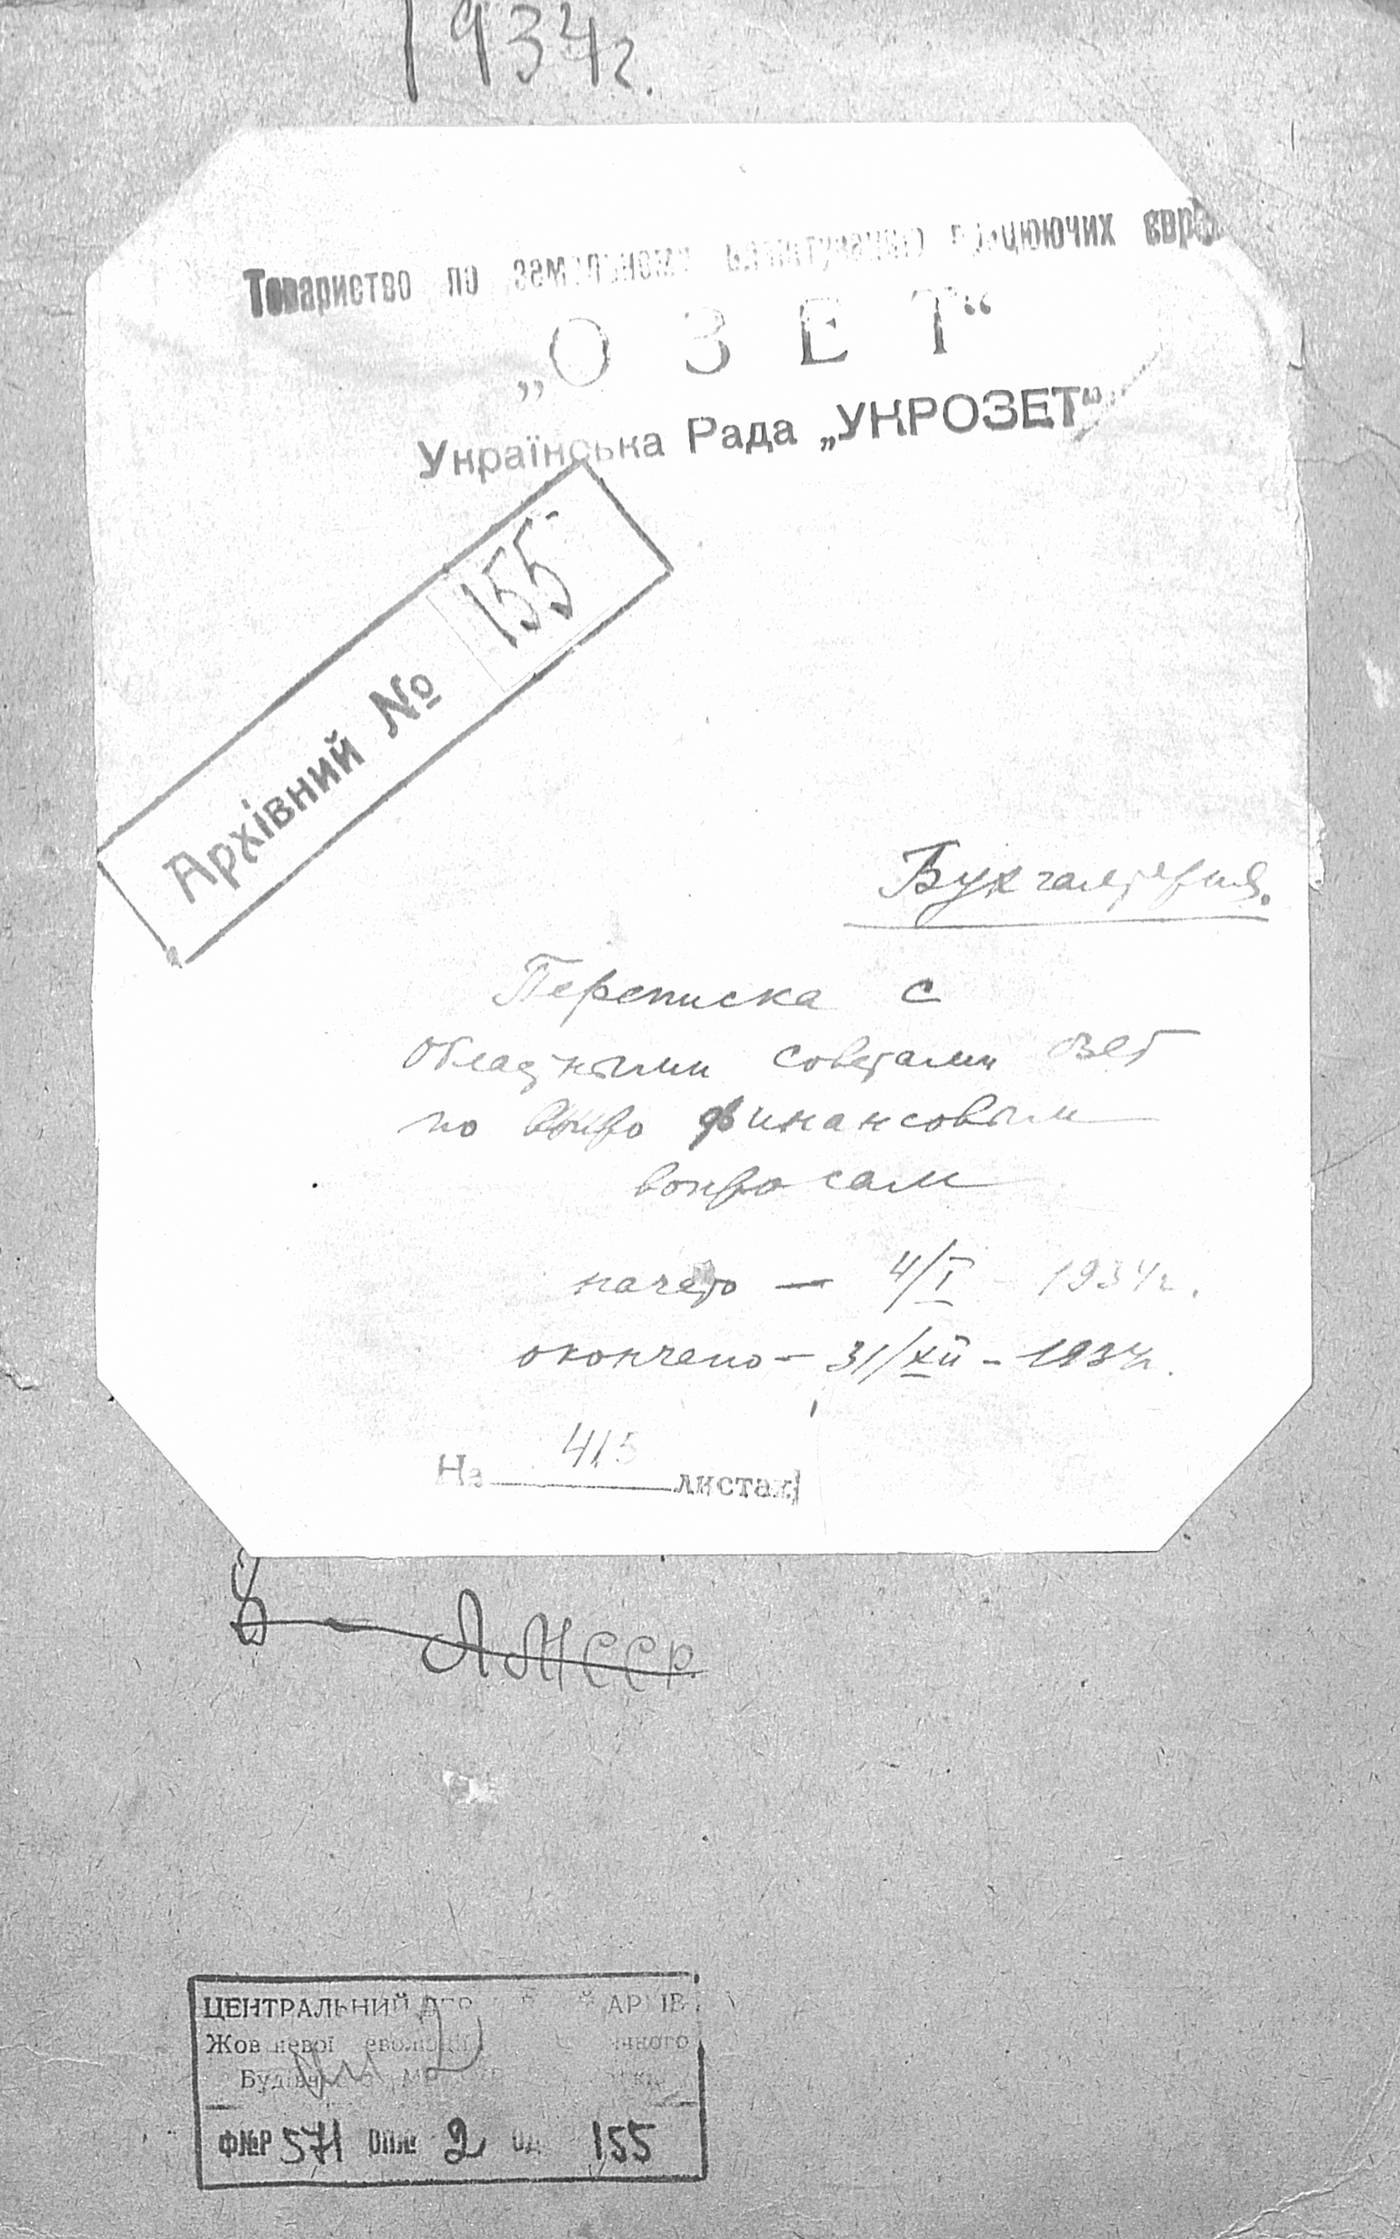 1934г.
Товариство по земельному працюючих євр
„О З Е Т“
Українська Рада „УКРОЗЕТ“
Архівний № 155
Бухгалтерия.
Переписка с
областными советами ОЗЕТ
по финансовым
вопросам
начато — 4/I - 1934г.
окончено — 31/XII - 1934г.
На 415 листах
8 - АМССР.
ЦЕНТРАЛЬНИЙ АРХІВ
Жовтневої революції
ФNР 571 ОП№ 2 ОД 155